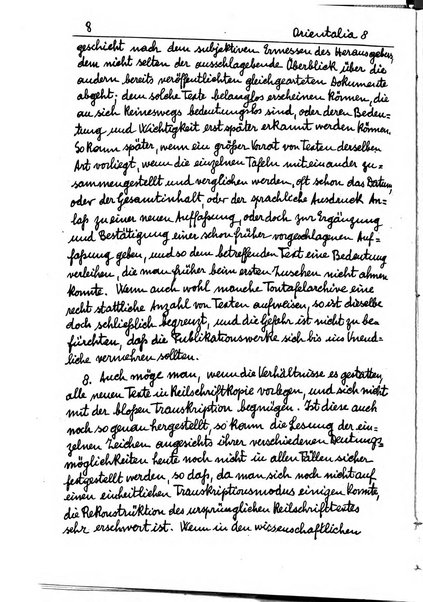 8
Orientalia 8
geschieht nach dem subjektiven Ermessen des Herausgebers,
dem nicht selten der ausschlagebende Überblick über die
andern bereits veröffentlichten gleichgearteten Dokumente
abgeht; dem solche Texte belanglos erscheinen können, die
an sich keineswegs bedeutungslos sind, oder deren Bedeu-
tung und Wichtigkeit erst später erkannt werden können.
So kann später, wenn ein großer Vorrat von Texten derselben
Art vorliegt, wenn die einzelnen Tafeln miteinander zu-
sammengestellt und verglichen werden, oft schon das Datum,
oder der Gesamtinhalt, oder der sprachliche Ausdruck An-
laß zu einer neuen Auffassung, oder doch zur Ergänzung
und Bestätigung einer schon früher vorgeschlagenen Auf-
fassung geben, und so dem betreffenden Text eine Bedeutung
verleihen, die man früher beim ersten Zusehen nicht ahnen
konnte. Wenn auch wohl manche Tontafelarchive eine
recht stattliche Anzahl von Texten aufweisen, so ist dieselbe
doch schließlich begrenzt, und die Gefahr ist nicht zu be-
fürchten, daß die Publikationswerke sich bis ins Unend-
liche vermehren sollten.
8. Auch möge man, wenn die Verhältnisse es gestatten,
alle neuen Texte in Keilschriftkopie vorlegen, und sich nicht
mit der bloßen Transkription begnügen. Ist diese auch
noch so genau hergestellt, so kann die Lesung der ein-
zelnen Zeichen angesichts ihrer verschiedenen Deutungs-
möglichkeiten heute noch nicht in allen Fällen sicher
festgestellt werden, so daß, da man sich noch nicht auf
einen einheitlichen Transkriptionsmodus einigen konnte,
die Rekonstruktion des ursprünglichen Keilschrifttextes
sehr erschwert ist. Wenn in den wissenschaftlichen